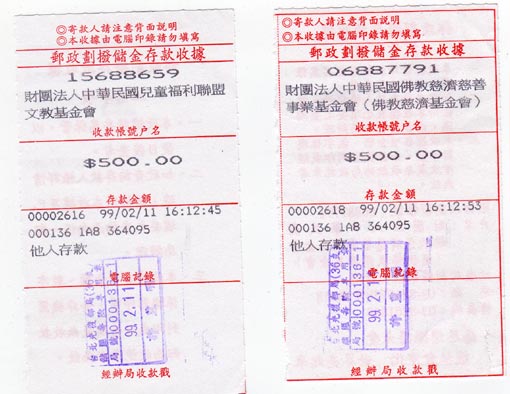 ◎寄款人請注意背面說明
◎本收據由電腦印錄請勿填寫
郵政劃撥儲金存款收據
15688659
財團法人中華民國兒童福利聯盟
文教基金會
收款帳號戶名
$500.00
存款金額
00002616 99/02/11 16:12:45
000136 1A8 364095
他人存款
電腦記錄
000136-1
99.2.11
經辦局收款戳
◎寄款人請注意背面說明
◎本收據由電腦印錄請勿填寫
郵政劃撥儲金存款收據
06887791
財團法人中華民國佛教慈濟慈善
事業基金會(佛教慈濟基金會)
收款帳號戶名
$500.00
存款金額
00002618 99/02/11 16:12:53
000136 1A8 364095
他人存款
電腦記錄
000136-1
99.2.11
經辦局收款戳